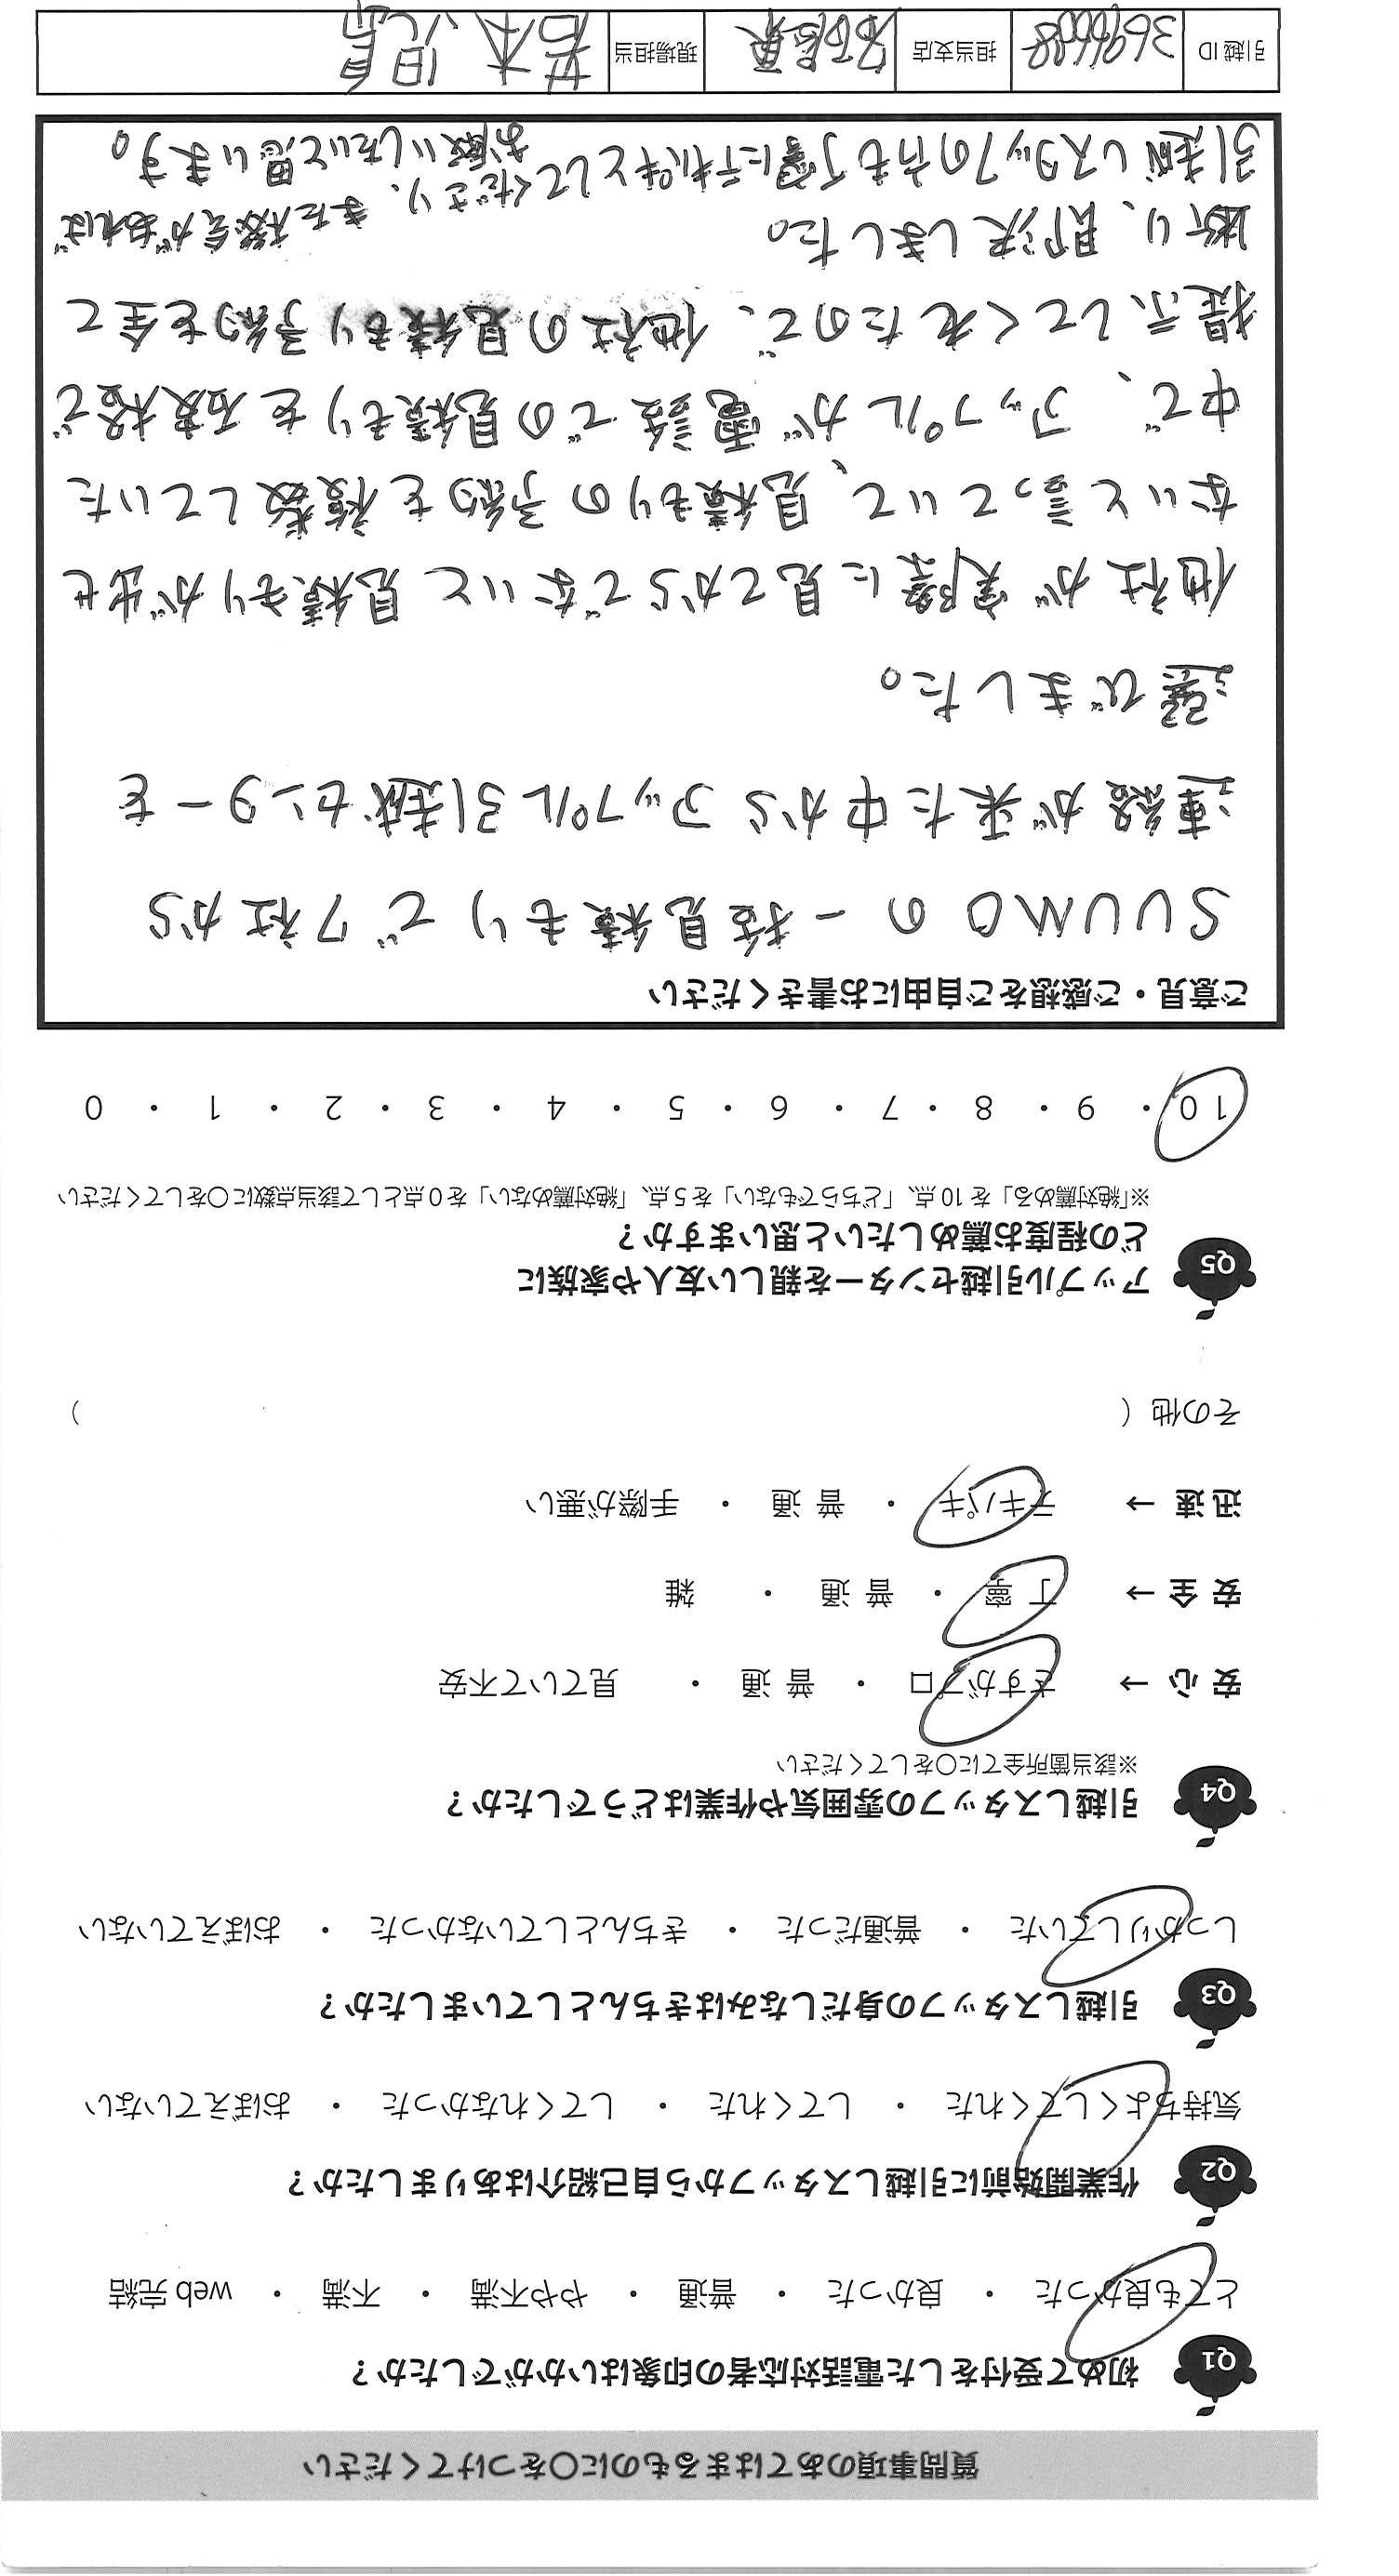 質問事項のあてはまるものに〇をつけてください
Q1 初めて受付をした電話対応者の印象はいかがでしたか？
とても良かった ・ 良かった ・ 普通 ・ やや不満 ・ 不満 ・ web 完結
Q2 作業開始前に引越しスタッフから自己紹介はありましたか？
気持ちよくしてくれた ・ してくれた ・ してくれなかった ・ おぼえていない
Q3 引越しスタッフの身だしなみはきちんとしていましたか？
しっかりしていた ・ 普通だった ・ きちんとしていなかった ・ おぼえていない
Q4 引越しスタッフの雰囲気や作業はどうでしたか？
※該当箇所全てに〇をしてください
安心 → さすがプロ ・ 普通 ・ 見ていて不安
安全 → 丁寧 ・ 普通 ・ 雑
迅速 → テキパキ ・ 普通 ・ 手際が悪い
その他（ ）
Q5 アップル引越センターを親しい友人や家族に
どの程度お薦めしたいと思いますか？
※「絶対薦める」を10点、「どちらでもない」を5点、「絶対薦めない」を0点として該当点数に〇をしてください
10 ・ 9 ・ 8 ・ 7 ・ 6 ・ 5 ・ 4 ・ 3 ・ 2 ・ 1 ・ 0
ご意見・ご感想をご自由にお書きください
SUUMOの一括見積もりで7社から
連絡が来た中からアップル引越センターを
選びました。
他社が実際に見てからでないと見積もりが出せ
ないと言っていて、見積もりの予約を複数していた
中で、アップルが電話での見積もりを破格で
提示してくれたので、他社の見積もり予約を全て
断り、即決しました。
引越しスタッフの方も丁寧にテキパキとしてくださり、また機会があれば
お願いしたいと思います。
引越ID 担当支店 現場担当